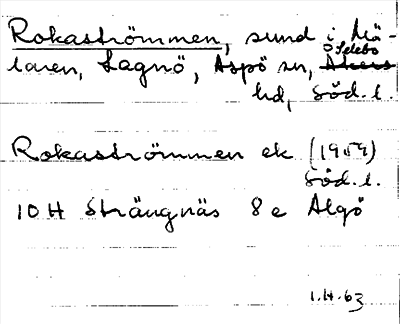 Rokaströmmen, sund i Mä-
laren, Lagnö, Aspö sn, Selebo
hd, Söd. l.
Rokaströmmen ek (1959)
Söd. l.
10 H Strängnäs 8 e Algö
1.H.63